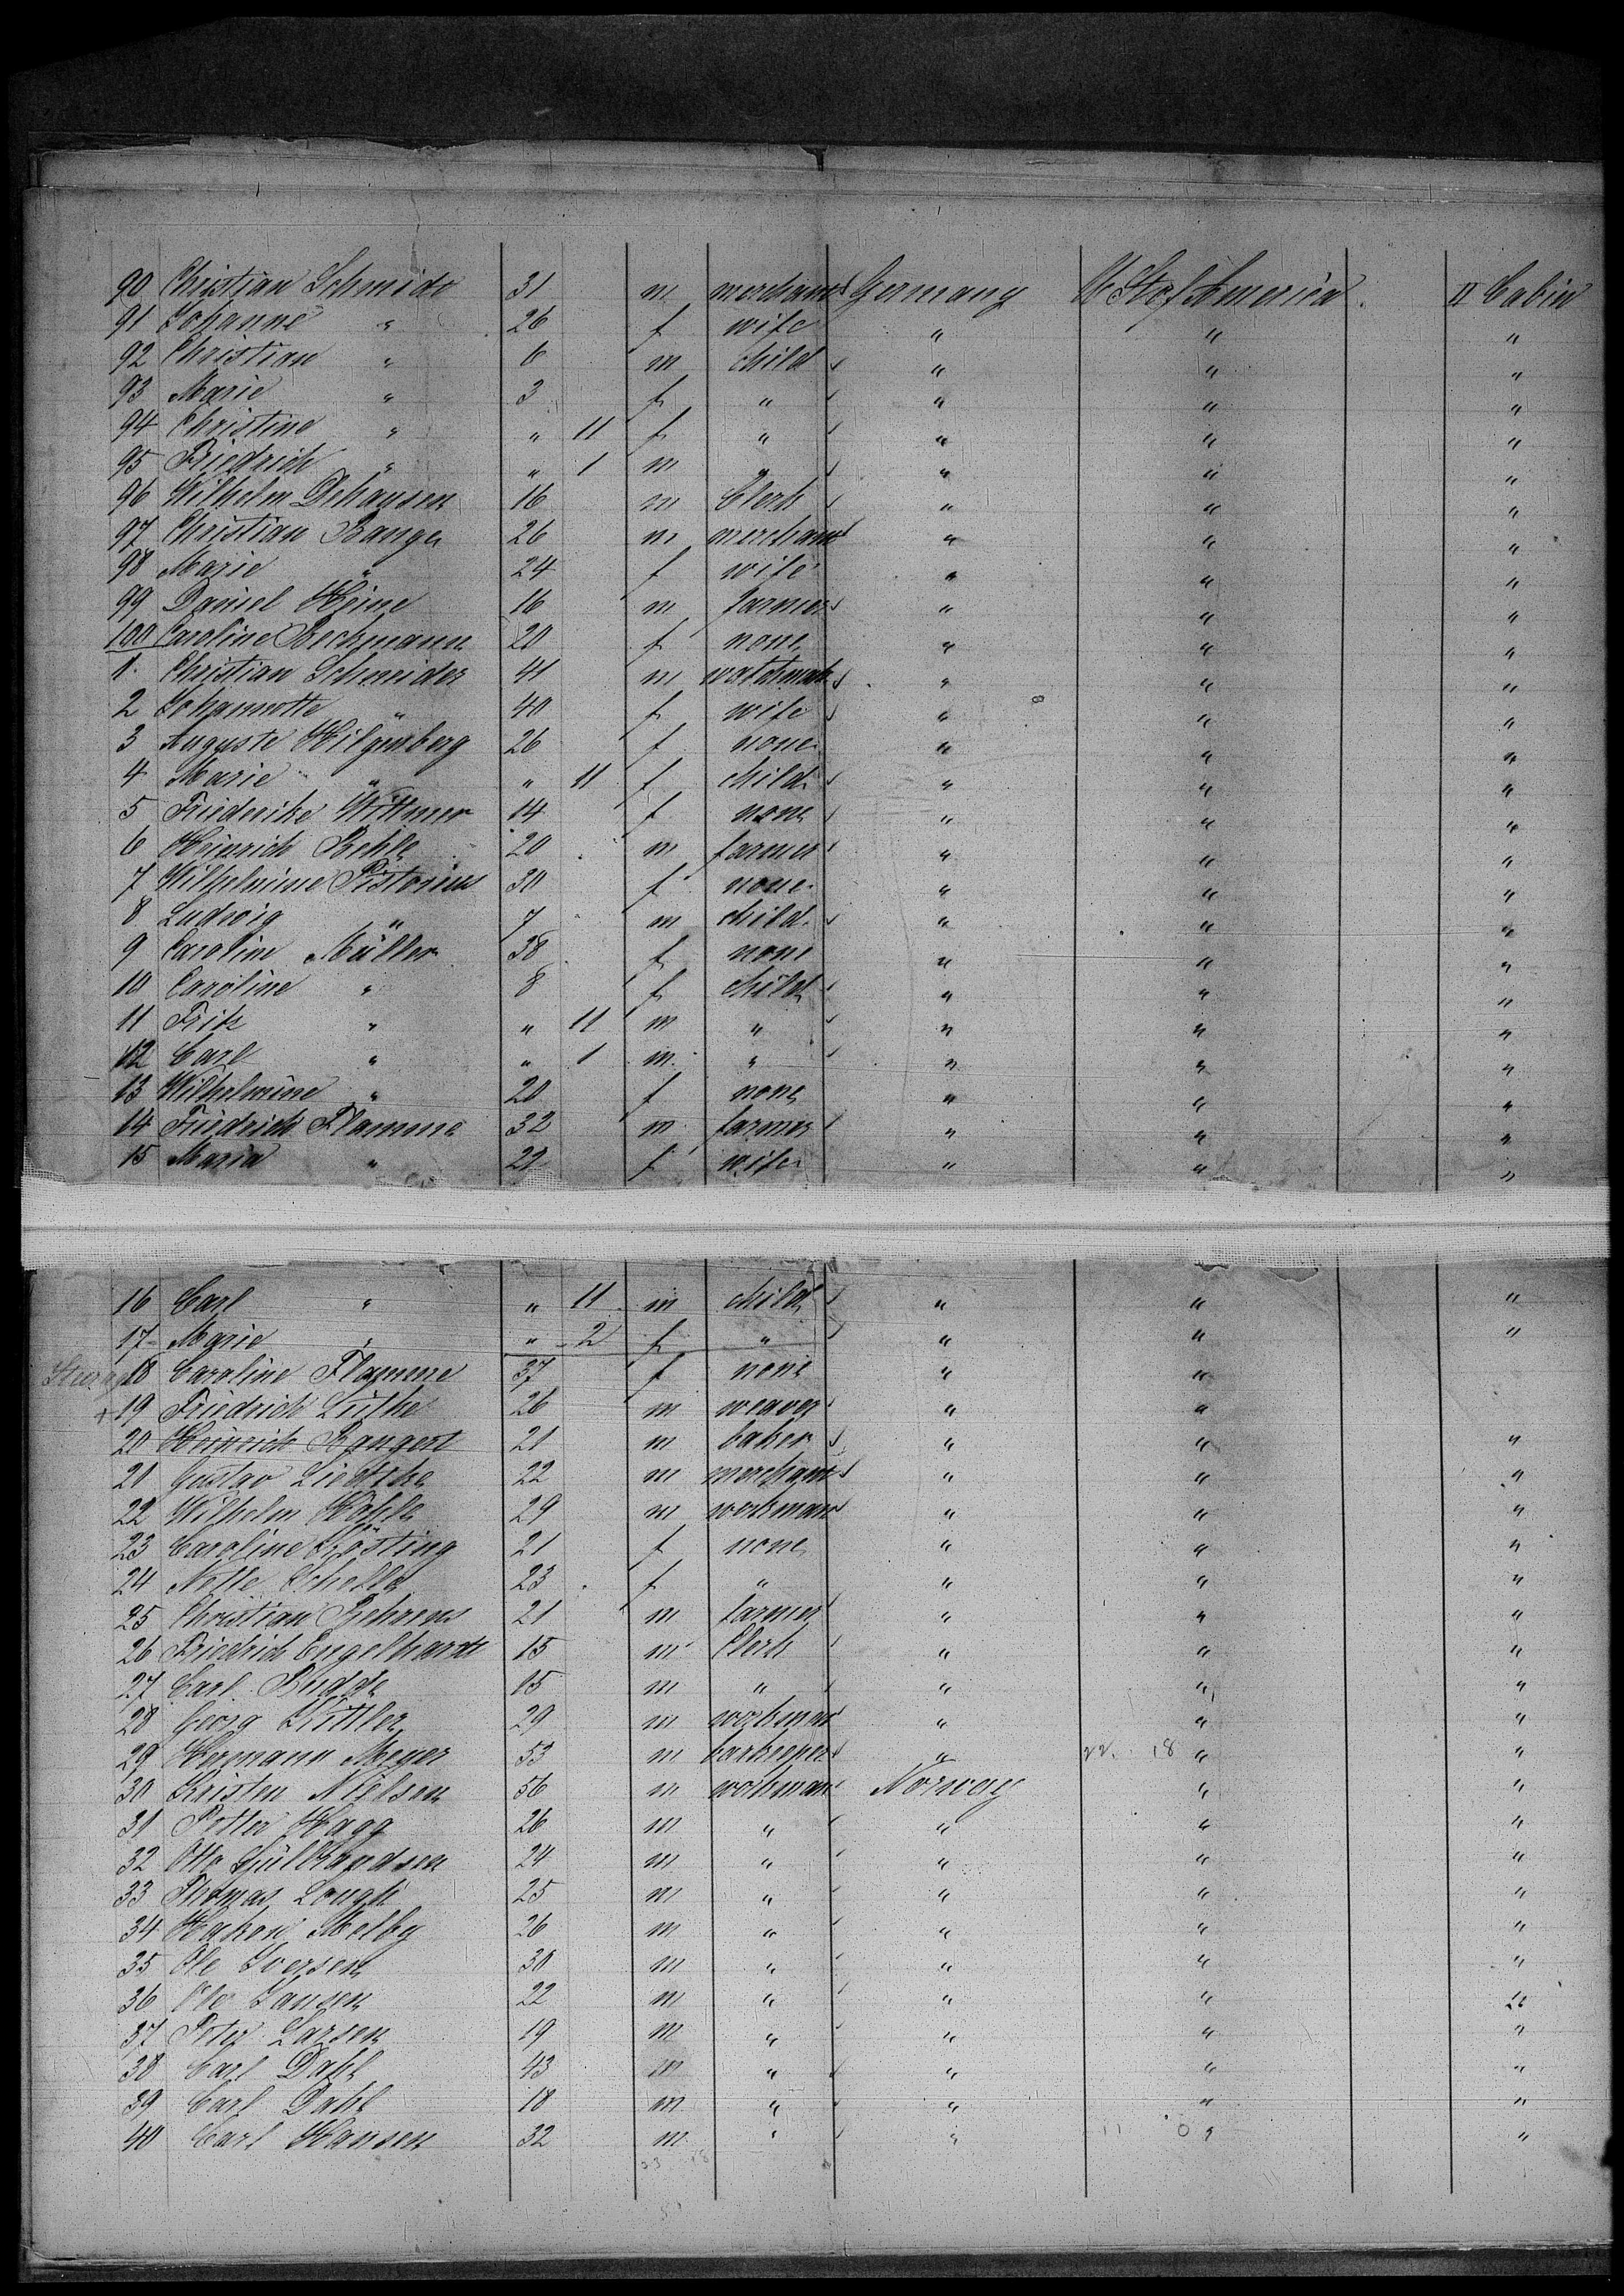 90 Christian Schmidt 31 m merchant Germany U St of America II Cabin
91 Johanne " 26 f wife " " "
92 Christian " 6 m child " " "
93 Marie " 3 f " " " "
94 Christine " " 11 f " " " "
95 Friedrich " " 1 m " " " "
96 Wilhelm Dehausen 16 m Clerk " " "
97 Christian Bange 26 m merchant " " "
98 Marie " 24 f wife " " "
99 Daniel Heine 16 m farmer " " "
100 Caroline Beckmann 20 f none " " "
1 Christian Schneider 41 m watchmak " " "
2 Johannette " 40 f wife " " "
3 Auguste Hilgenberg 26 f none " " "
4 Marie " " 11 f child " " "
5 Friederike Wittmer 14 f none " " "
6 Heinrich Behle 20 m farmer " " "
7 Wilhelmine Pistorius 30 f none " " "
8 Ludwig " 7 m child " " "
9 Caroline Müller 38 f none " " "
10 Caroline " 8 f child " " "
11 Fritz " " 11 m " " " "
12 Carl " " 1 m " " " "
13 Wilhelmine " 20 f none " " "
14 Friedrich Flamme 32 m farmer " " "
15 Maria " 22 f wife " " "
16 Carl " " 11 m child " " "
17 Marie " " 2 f " " " "
18 Caroline Flamme 37 f none " "
+ 19 Friedrich Lüthe 26 m weaver " "
20 Heinrich Bangert 21 m baker " " "
21 Gustav Liedtke 22 m merchant " " "
22 Wilhelm Kohle 29 m workman " " "
23 Caroline Kösting 21 f none " " "
24 Nelle Schelle 23 f " " " "
25 Christian Behrens 21 m farmer " " "
26 Friedrich Engelhardt 15 m Clerk " " "
27 Carl Budde 15 m " " " "
28 Georg Kittler 29 m workman " " "
29 Hermann Meyer 53 m barkeeper " 22. 18 " "
30 Kristen Nielsen 56 m workman Norway " "
31 Petter Hagg 26 m " " " "
32 Otto Gülbrandsen 24 m " " " "
33 Thomas Lough 25 m " " " "
34 Hakon Melby 26 m " " " "
35 Ole Iversen 30 m " " " "
36 Ole Jansen 22 m " " " "
37 Peter Larsen 19 m " " " "
38 Carl Dahl 43 m " " " "
39 Carl Dahl 18 m " " " "
40 Carl Hansen 32 m " " 11 0 " "
33 18